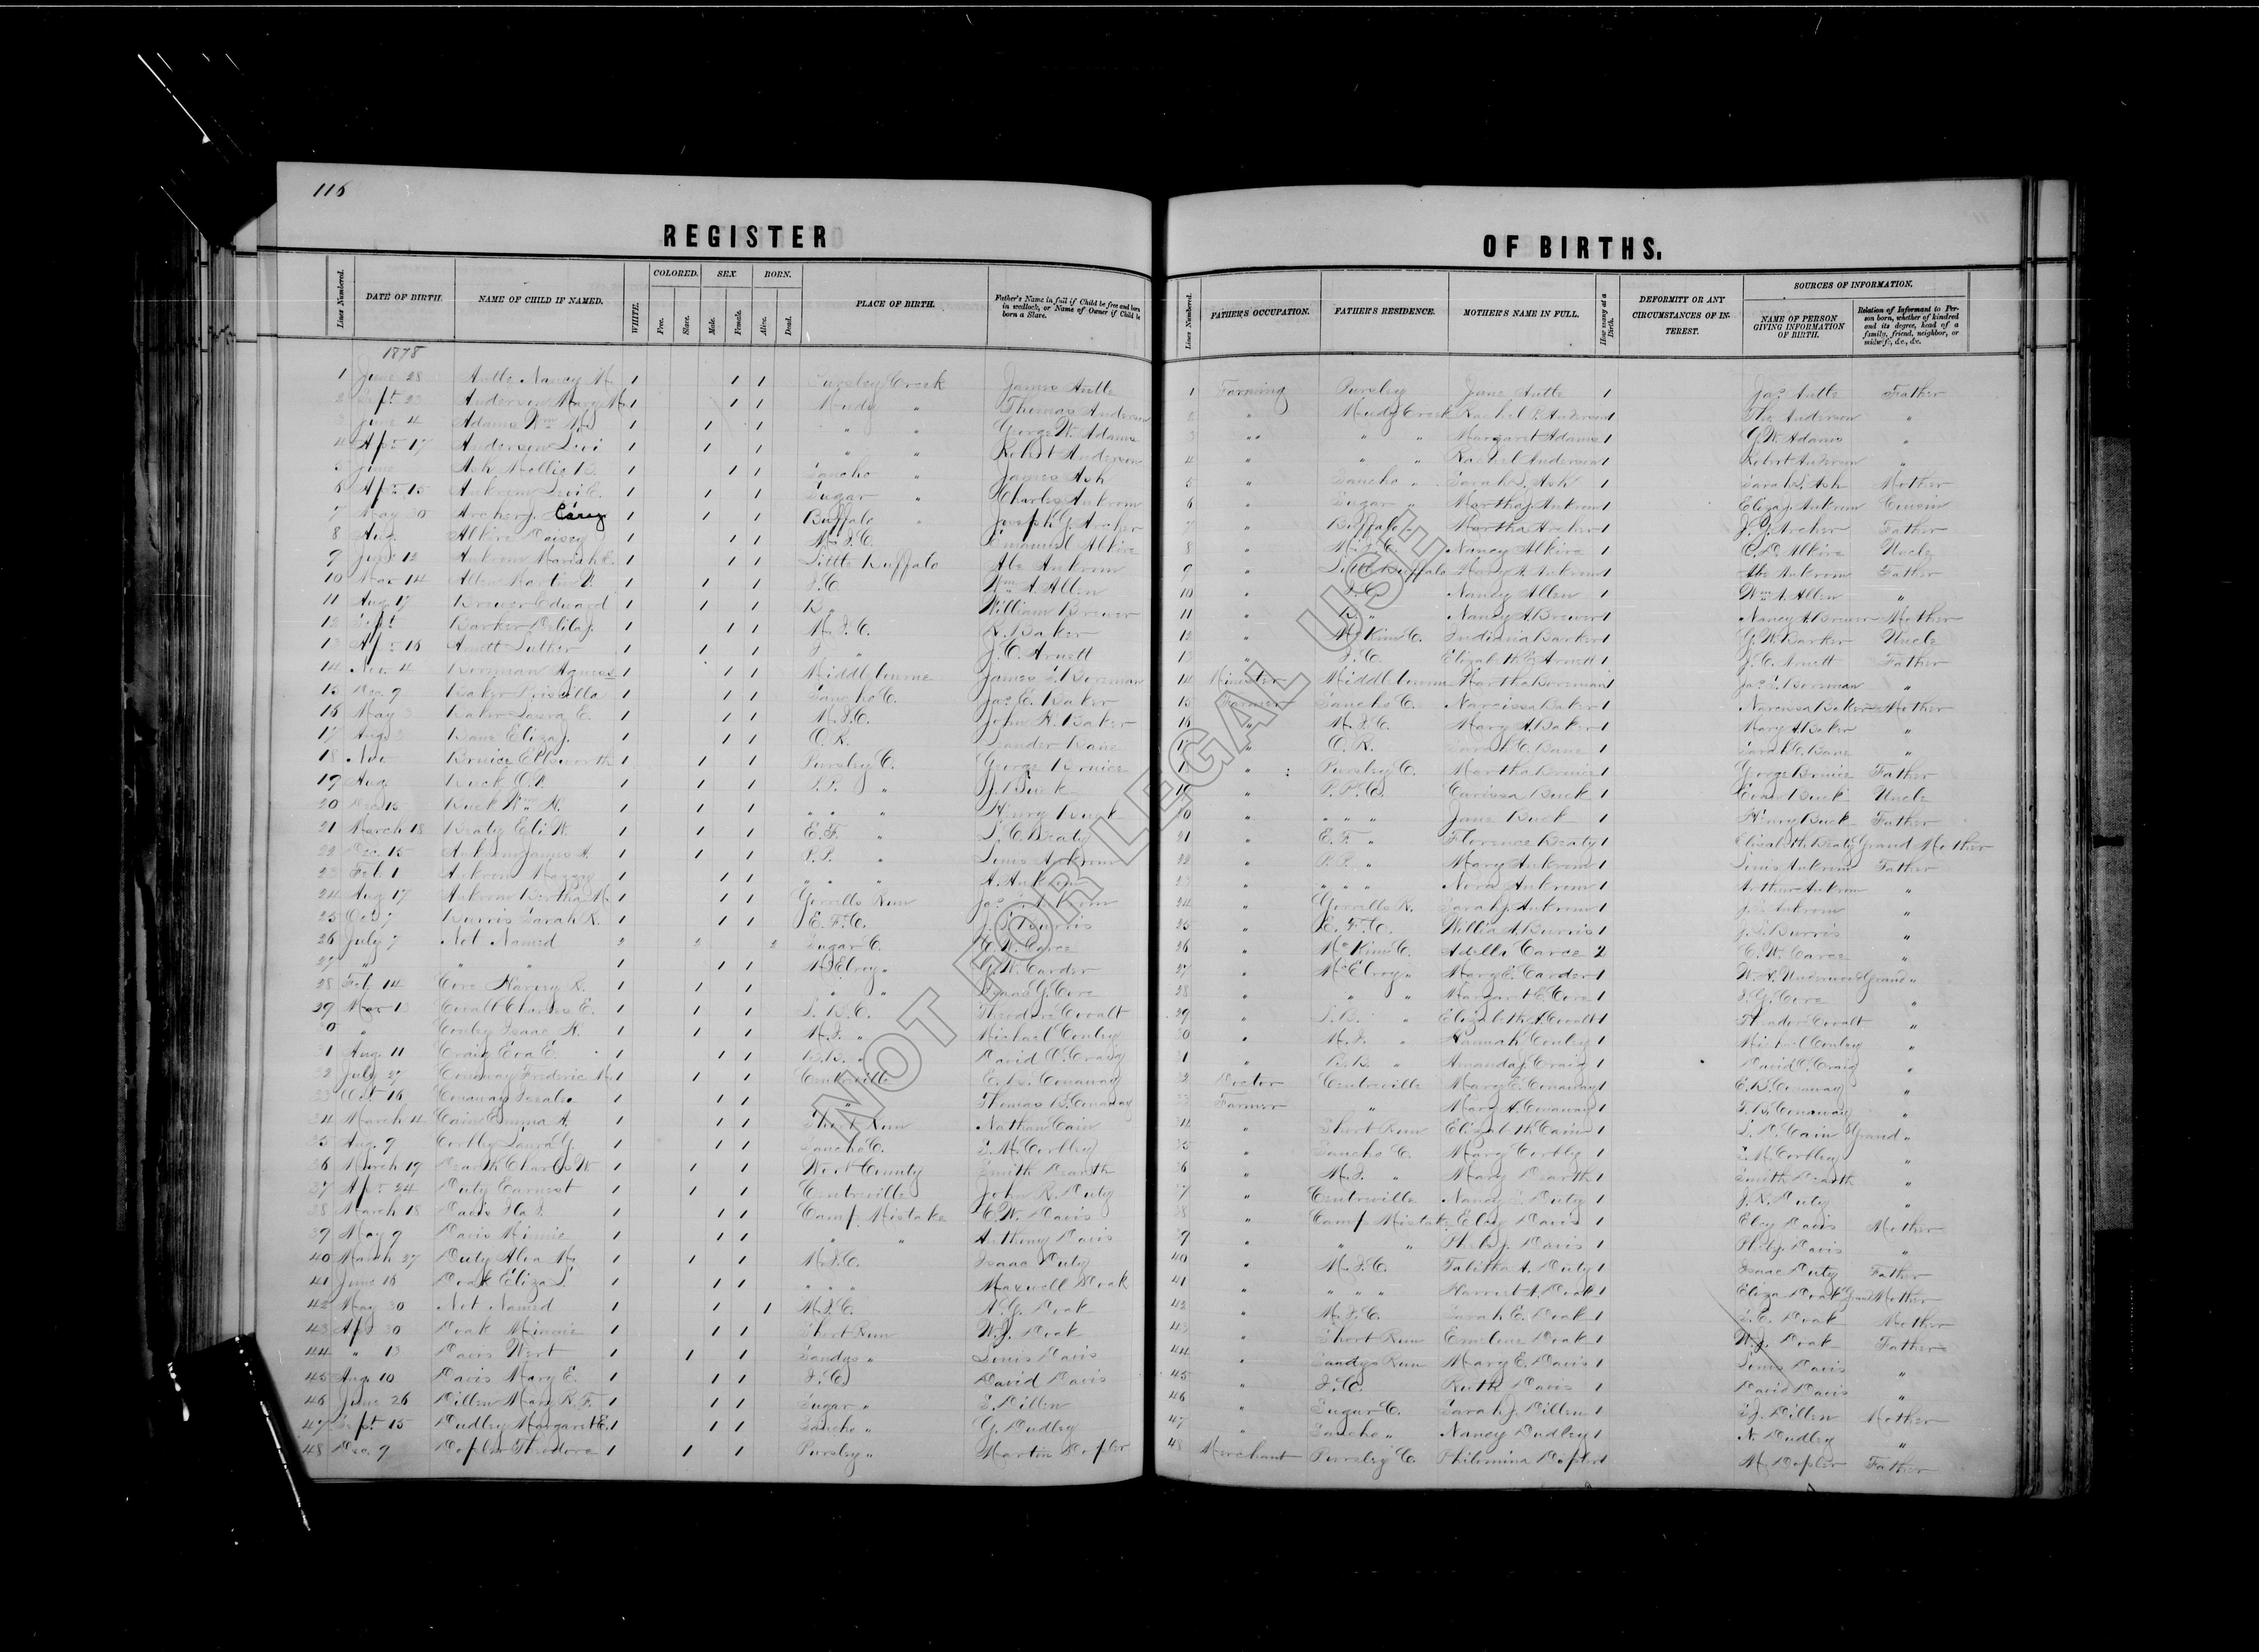 116
REGISTER OF BIRTHS.
Lines Numbered. DATE OF BIRTH. NAME OF CHILD IF NAMED. WHITE. COLORED. Free. Slave. SEX. Male. Female. BORN. Alive. Dead. PLACE OF BIRTH. Father's Name in full if Child be free and born in wedlock, or Name of Owner if Child be born a Slave.
Lines Numbered. FATHER'S OCCUPATION. FATHER'S RESIDENCE. MOTHER'S NAME IN FULL. How many at a Birth. DEFORMITY OR ANY CIRCUMSTANCES OF INTEREST. SOURCES OF INFORMATION. NAME OF PERSON GIVING INFORMATION OF BIRTH. Relation of Informant to Person born, whether of kindred and its degree, head of a family, friend, neighbor, or midwife, &c., &c.
1878
1 June 28 Autle Nancy M 1 1 1 Pursley Creek James Autle 1 Farming Pursley Jane Autle 1 Jas Autle Father
2 Sept 23 Anderson Mary M. 1 1 1 Mudy " Thomas Anderson 2 " Mudy Creek Rachel Anderson 1 Tho Anderson "
3 June 4 Adams Wm 1 1 1 " " George W. Adams 3 " " " Margaret Adams 1 G.W. Adams "
4 Apr 17 Anderson Levi 1 1 1 " " Robert Anderson 4 " " " Rachel Anderson 1 Robert Anderson "
5 June Ash Mollie B. 1 1 1 Sancho " James Ash 5 " Sancho " Sarah S. Ash 1 Sarah S. Ash Mother
6 Apr 15 Ankrom Levi E. 1 1 1 Sugar " Charles Ankrom 6 " Sugar " Martha J Ankrom 1 Eliza J. Ankrom Cousin
7 May 30 Archer J. Carey 1 1 1 Buffalo " Joseph G. Archer 7 " Buffalo " Martha Archer 1 J. G. Archer Father
8 Aug. Alkire Daisey 1 1 1 M.I.C. Emanuel Alkire 8 " M.I.C. Nancy Alkire 1 C.D. Alkire Uncle
9 12 Ankrom Mariah 1 1 1 Little Buffalo Abe Ankrom 9 " Little Buffalo Mary A. Ankrom 1 Abe Ankrom Father
10 Mar 14 Allen Martin 1 1 1 I.C. Wm A. Allen 10 " I.C. Nancy Allen 1 Wm A. Allen "
11 Aug. 17 Brewer Edward 1 1 1 B " William Brewer 11 " B. " Nancy A Brewer 1 Nancy A Brewer Mother
12 Sept Barker Delila J. 1 1 1 M.I.C. R. Baker 12 " McKim C. Indiania Barker 1 G.W. Barker Uncle
13 Apr 16 Arnett Luther 1 1 1 I " J.C. Arnett 13 " I.C. Elizabeth Arnett 1 J.C. Arnett Father
14 Nov. 4 Boreman Agness 1 1 1 Middlebourne James Boreman 14 Minister Middlebourne Martha Boreman 1 Jas Boreman "
15 Dec. 9 Baker Priscilla 1 1 1 Sancho C. Jas E. Baker 15 Farmer Sancho C. Narcissa Baker 1 Narcissa Baker Mother
16 May 3 Baker Laura E. 1 1 1 M.I.C. John H. Baker 16 " M.I.C. Mary A. Baker 1 Mary A. Baker "
17 Aug. Bane Eliza J. 1 1 1 O.R. Leander Bane 17 " O.R. Sarah C. Bane 1 Sarah C. Bane "
18 Nov Bruice Ellsworth 1 1 1 Pursley C. George Bruice 18 " Pursley C. Martha Bruice 1 George Bruice Father
19 Aug. Buck O. 1 1 1 P.P. " J. Buck 19 " P.P.C. Carissa Buck 1 Evan Buck Uncle
20 Dec 15 Buck Wm H. 1 1 1 " " " Henry Buck 20 " " " " Jane Buck 1 Henry Buck Father
21 March 18 Beaty Eli W. 1 1 1 E.F. " S.C. Beaty 21 " E.F. " Florence Beaty 1 Elizabeth Beaty Grand Mother
22 Dec. 15 Ankrom James A. 1 1 1 P.P. " Louis Ankrom 22 " P.P. " Mary Ankrom 1 Louis Ankrom Father
23 Feb. 1 Ankrom Mazzy 1 1 1 " " " A. Ankrom 23 " " " " Nora Ankrom 1 Arthur Ankrom "
24 Aug 17 Ankrom Bertha M. 1 1 1 Gorrells Run Jas Ankrom 24 " Gorrells R. Sarah J. Ankrom 1 J. Ankrom "
25 Oct 7 Burris Sarah R. 1 1 1 E.F.C. J.S. Burris 25 " E.F.C. Willia A. Burris 1 J.S. Burris "
26 July 7 Not Named 2 2 2 Sugar C. C.W. Carce 26 " McKim C. Adella Carce 2 C.W. Carce "
27 " " " 1 1 1 McElroy " G.W. Carder 27 " McElroy " Mary E. Carder 1 W.A. Underwood Grand "
28 Feb. 14 Core Harvey R. 1 1 1 " " Isaac G. Core 28 " " " Margaret E. Core 1 I.G. Core "
29 Mar 13 Covalt Charles E. 1 1 1 S.B.C. Theodore Covalt 29 " S.B. " Elizabeth A. Covalt 1 Theodore Covalt "
30 " Conley Isaac H. 1 1 1 M.I. " Michael Conley 30 " M.I. " Hannah Conley 1 Michael Conley "
31 Aug. 11 Craig Eva E. 1 1 1 B.R. " David O. Craig 31 " B.R. " Amanda J. Craig 1 David O. Craig "
32 July 27 Conaway Frederic M. 1 1 1 Centreville E.B. Conaway 32 Doctor Centreville Mary E. Conaway 1 E.B. Conaway "
33 Oct 16 Conaway 1 1 1 " Thomas B. Conaway 33 Farmer " Mary A. Conaway 1 T.B. Conaway "
34 March 4 Cain Emma A. 1 1 1 Short Run Nathan Cain 34 " Short Run Elizabeth Cain 1 S.D. Cain Grand "
35 Aug. 9 Cortley Laura G. 1 1 1 Sancho C. S.M. Cortley 35 " Sancho C. Mary Cortley 1 S.M. Cortley "
36 March 19 Dearth Charles W. 1 1 1 Wert County Smith Dearth 36 " M.I. " Mary Dearth 1 Smith Dearth "
37 Apr 24 Duty Earnest 1 1 1 Centreville John R. Duty 37 " Centreville Nancy Duty 1 J.R. Duty "
38 March 18 Davis Ila I. 1 1 1 Camp Mistake C.W. Davis 38 " Camp Mistake Eley Davis 1 Eley Davis Mother
39 May 9 Davis Minnie 1 1 1 " " Anthony Davis 39 " " " Pheby Davis 1 Pheby Davis "
40 March 27 Duty Alva M. 1 1 1 M.I.C. Isaac Duty 40 " M.I.C. Tabitha A. Duty 1 Isaac Duty Father
41 June 16 Doak Eliza 1 1 1 " " " Maxwell Doak 41 " " " " Harriet A. Doak 1 Eliza Doak Grand Mother
42 May 30 Not Named 1 1 1 M.I.C. A.G. Doak 42 " M.I.C. Sarah E. Doak 1 S.E. Doak Mother
43 Apr 30 Doak Minnie 1 1 1 Short Run W.J. Doak 43 " Short Run Emeline Doak 1 W.J. Doak Father
44 " 13 Davis Wert 1 1 1 Sandys " Louis Davis 44 " Sandys Run Mary E. Davis 1 Louis Davis "
45 Aug. 10 Davis Mary E. 1 1 1 I.C. David Davis 45 " I.C. Ruth Davis 1 David Davis "
46 June 26 Dillen Mary R.F. 1 1 1 Sugar " S. Dillen 46 " Sugar C. Sarah J. Dillen 1 S.J. Dillen Mother
47 Sept. 15 Dudley Margaret E. 1 1 1 Sancho " G. Dudley 47 " Sancho " Nancy Dudley 1 N. Dudley "
48 Dec. 9 Dopler Theodore 1 1 1 Pursley " Martin Dopler 48 Merchant Pursley C. Philomina Dopler 1 M. Dopler Father
NOT FOR LEGAL USE